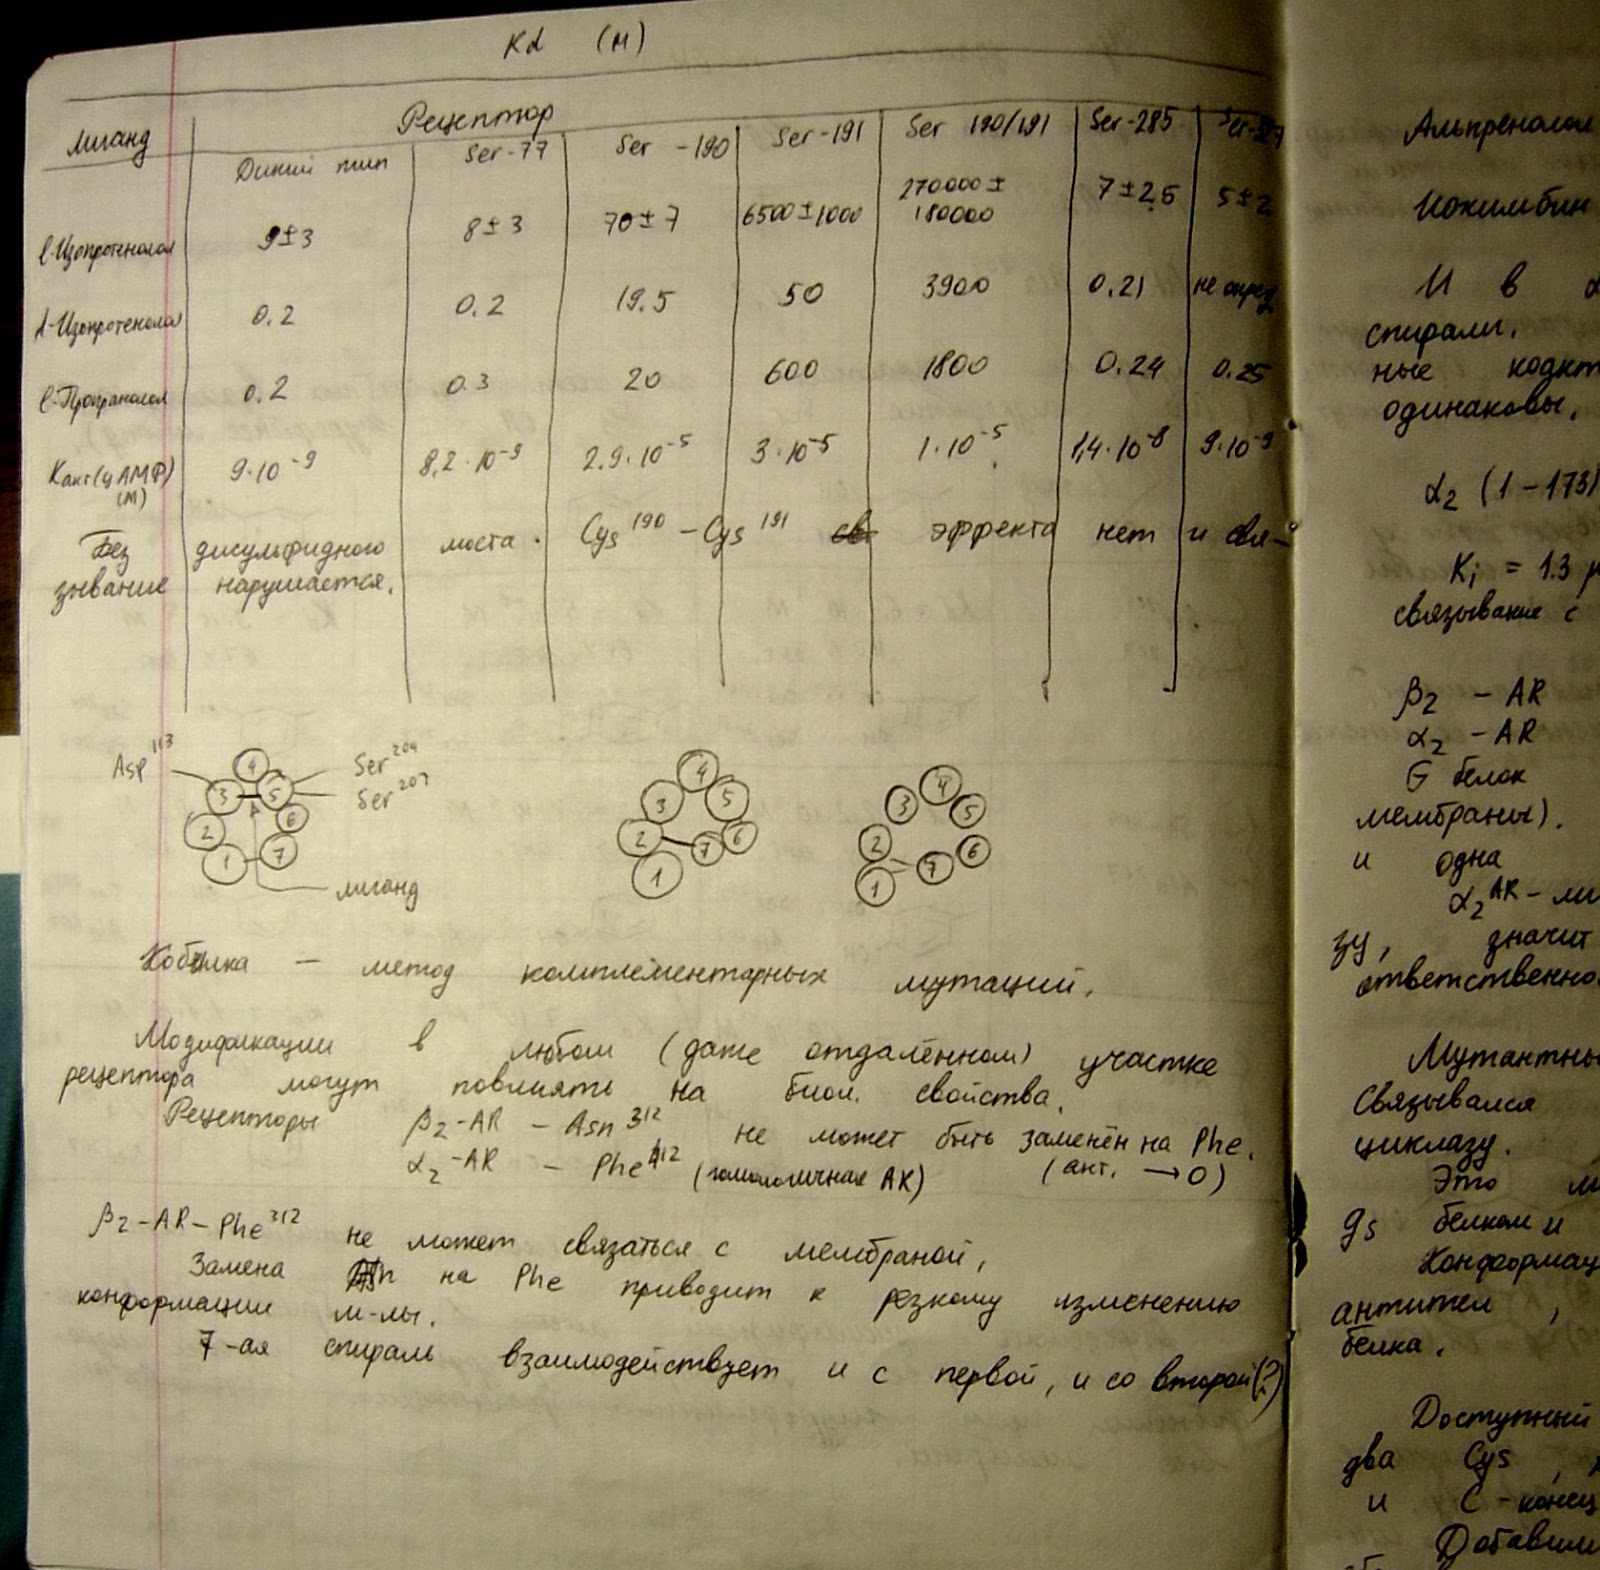 Kd (M)
лиганд Рецептор
Дикий тип Ser-77 Ser -190 Ser -191 Ser 190/191 Ser-285 Ser-327
l-Изопротенолол 9±3 8±3 70±7 6500±1000 270000± 180000 7±2,5 5±2
d-Изопротенолол 0.2 0.2 19.5 50 3900 0.21 не опред
l-Пропранолол 0.2 0.3 20 600 1800 0.24 0.25
Kакт(цАМФ) (M) 9·10⁻⁹ 8,2·10⁻⁹ 2.9·10⁻⁵ 3·10⁻⁵ 1·10⁻⁵ 1,4·10⁻⁸ 9·10⁻⁹
Без дисульфидного моста. Cys¹⁹⁰ – Cys¹⁹¹ эффекта нет и свя-
зывание нарушается.
Asp¹¹³ Ser²⁰⁴
Ser²⁰⁷
1 2 3 4 5 6 7
лиганд
1 2 3 4 5 6 7
1 2 3 4 5 6 7
Кобилка – метод комплементарных мутаций.
Модификации в любом (даже отдалённом) участке
рецептора могут повлиять на биол. свойства.
Рецепторы β₂-AR – Asn³¹² не может быть заменён на Phe.
α₂-AR – Phe⁴¹² (гомологичная АК) (акт. → 0)
β₂-AR-Phe³¹² не может связаться с мембраной,
Замена Asn на Phe приводит к резкому изменению
конформации м-лы.
7-ая спираль взаимодействует и с первой, и со второй(?)
Альпренолол
Иохимбин
И в
спирали.
ные
одинаковы.
α₂ (1–173)
Ki = 1.3
связывание с
β₂ – AR
α₂ – AR
G белок
мембраны).
и одна
α₂AR – ли
зу, значит
ответственно
Мутантны
связывался
циклазу.
Это
gs белком и
Конформац
антител,
белка.
Доступный
два Cys,
и С-конец
Добавили